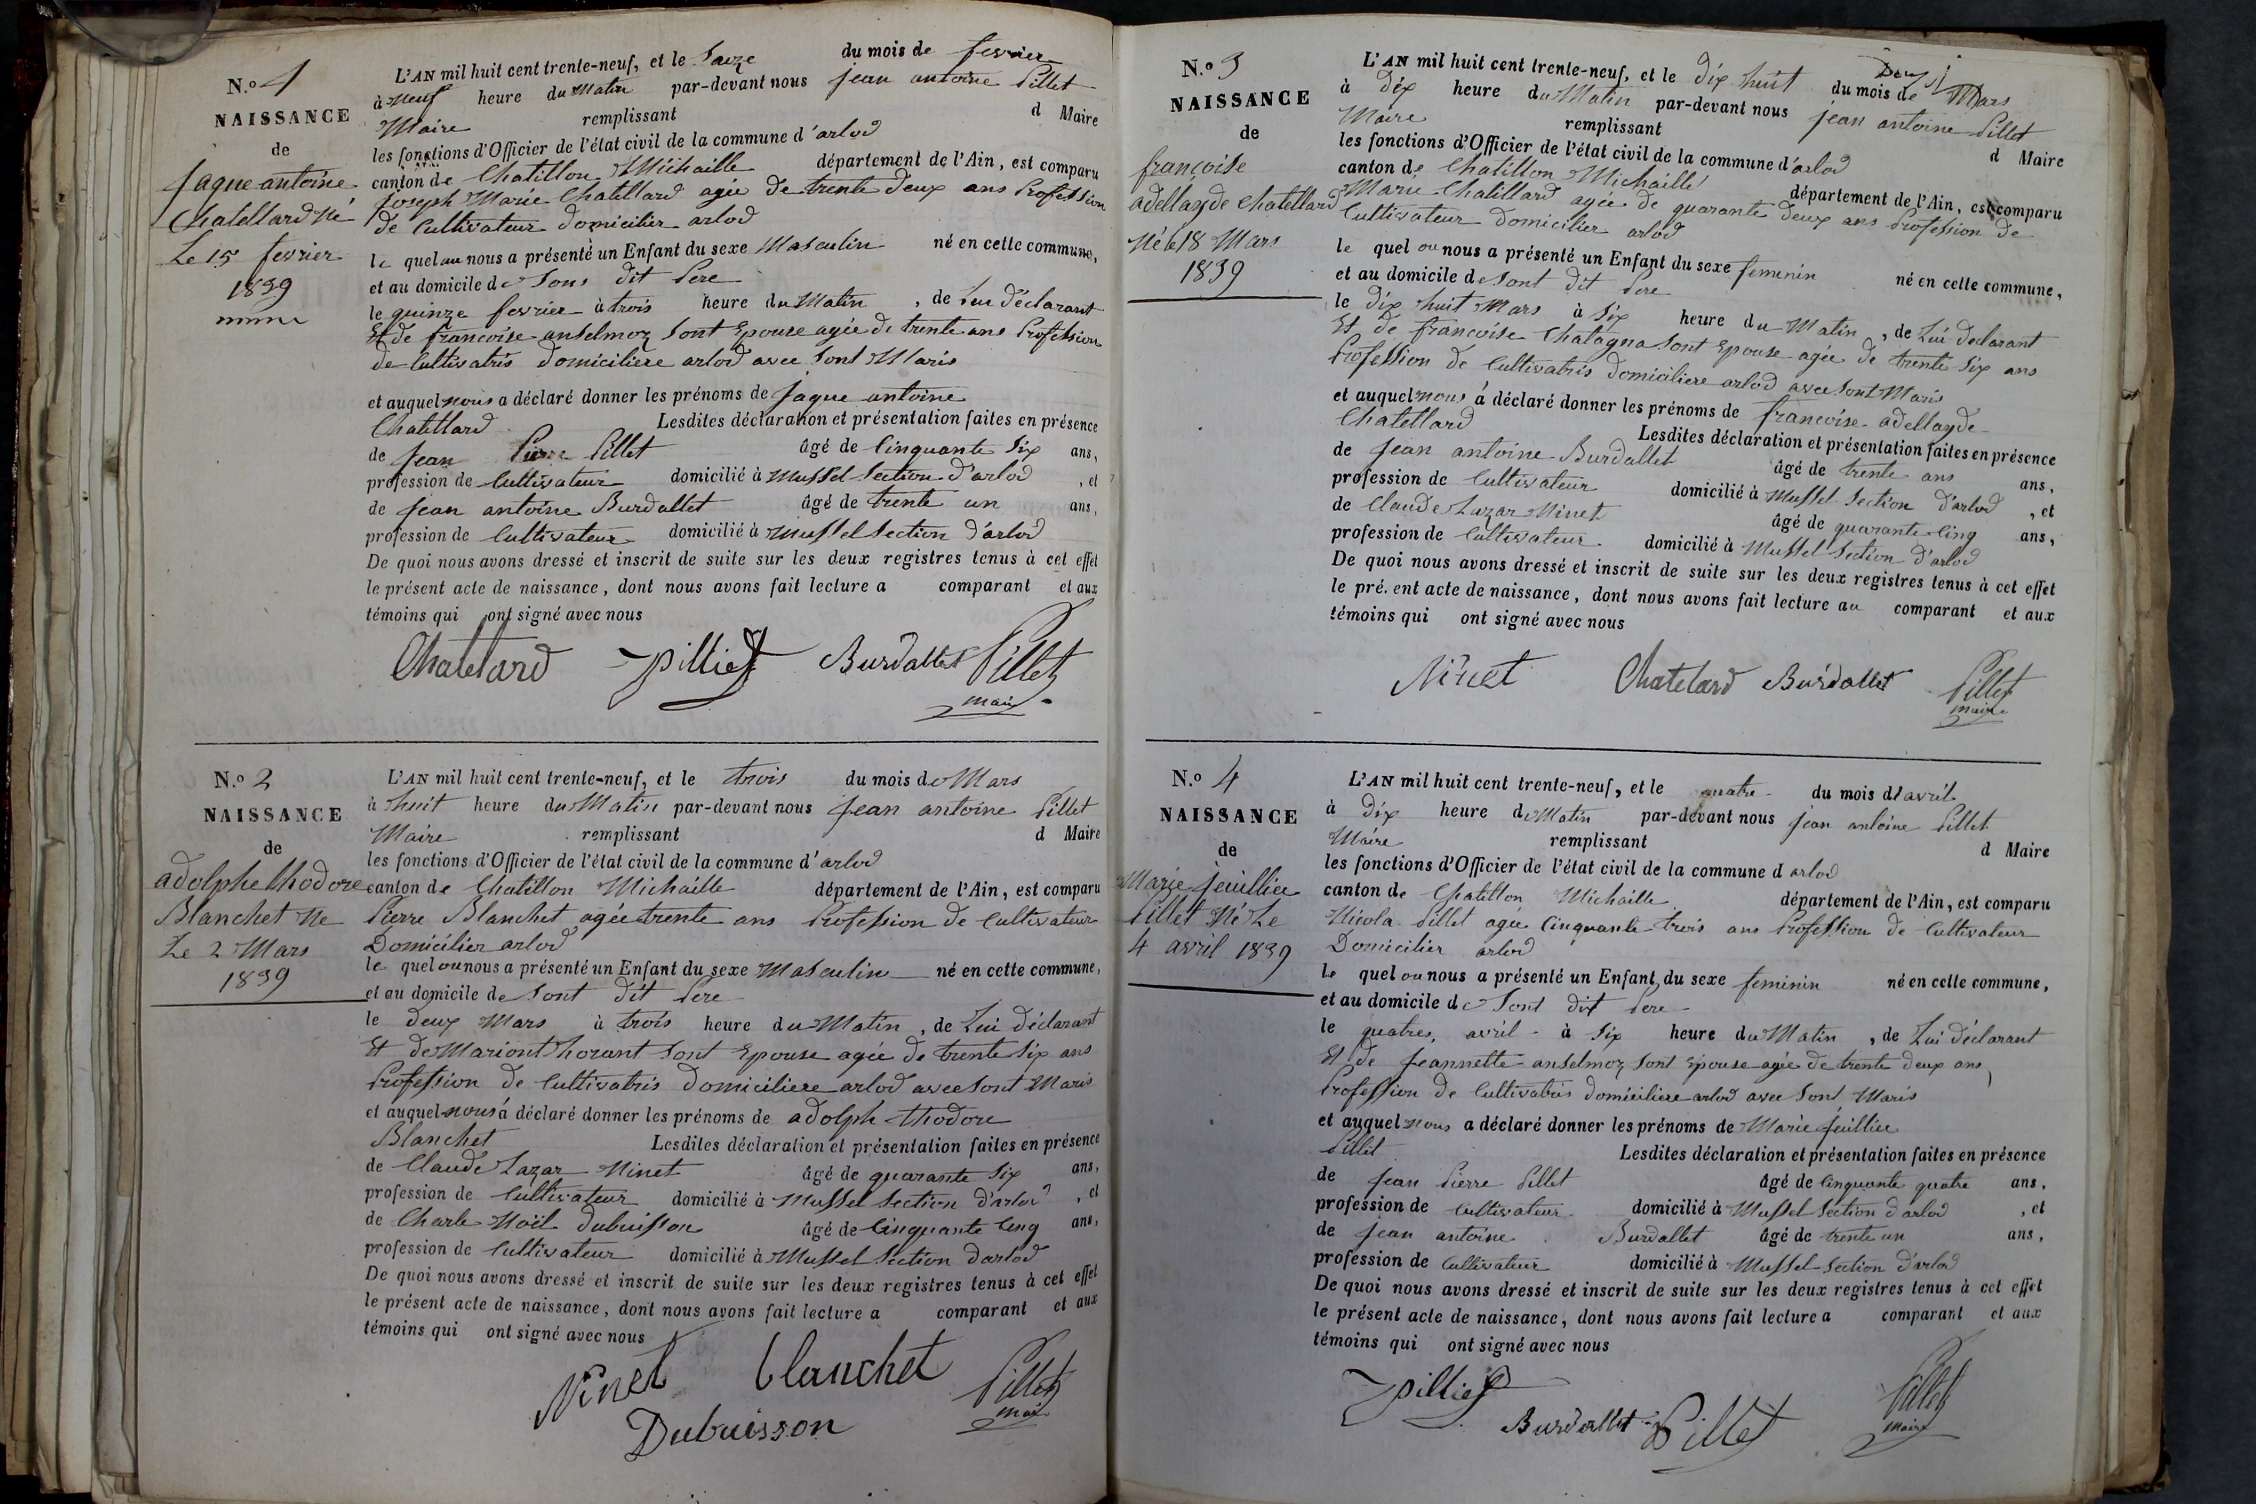 N.o 1
NAISSANCE
de
jaque antoine
Chatellard né
Le 15 fevrier
1839
L'AN mil huit cent trente-neuf, et le Saize du mois de fevrier
à neuf heure du Matin par-devant nous jean antoine Pillet
Maire remplissant d Maire
les fonctions d'Officier de l'état civil de la commune d'arlod
canton de Chatillon Michaille département de l'Ain, est comparu
joseph Marie Chatellard agée de trente deux ans Profession
de Cultivateur domicilier arlod
le quel ou nous a présenté un Enfant du sexe Masculin né en cette commune,
et au domicile de Sons dit Pere
le quinze fevrier à trois heure du Matin, de Lui déclarant
Et de francoise anselmoz Sont Epouse agée de trente ans Profession
de Cultivatris domiciliere arlod avec Sont Maris
et auquel nous a déclaré donner les prénoms de jaque antoine
Chatellard Lesdites déclaration et présentation faites en présence
de jean Pierre Pillet âgé de Cinquante Six ans,
profession de Cultivateur domicilié à Mussel Section d'arlod, et
de jean antoine Burdallet âgé de trente un ans,
profession de Cultivateur domicilié à Mussel Section d'arlod
De quoi nous avons dressé et inscrit de suite sur les deux registres tenus à cet effet
le présent acte de naissance, dont nous avons fait lecture a comparant et aux
témoins qui ont signé avec nous
Chatelard Pilliet Burdallet Pillet
maire
N.o 2
NAISSANCE
de
adolphe thodore
Blanchet Ne
Le 2 Mars
1839
L'AN mil huit cent trente-neuf, et le trois du mois de Mars
à huit heure du Matin par-devant nous jean antoine Pillet
Maire remplissant d Maire
les fonctions d'Officier de l'état civil de la commune d'arlod
canton de Chatillon Michaille département de l'Ain, est comparu
Pierre Blanchet agée trente ans Profession de Cultivateur
Domicilier arlod
le quel ou nous a présenté un Enfant du sexe Masculin né en cette commune,
et au domicile de Sont dit Pere
le deux Mars à trois heure du Matin, de Lui déclarant
Et de Mariont horant Sont Epouse agée de trente Six ans
Profession de Cultivatris domiciliere arlod avec Sont Maris
et auquel nous a déclaré donner les prénoms de adolph thodore
Blanchet Lesdites déclaration et présentation faites en présence
de Claude Lazar Ninet âgé de quarante Six ans,
profession de Cultivateur domicilié à Mussel Section d'arlod, et
de Charle Noël dubuisson âgé de Cinquante Cinq ans,
profession de Cultivateur domicilié à Mussel Section darlod
De quoi nous avons dressé et inscrit de suite sur les deux registres tenus à cet effet
le présent acte de naissance, dont nous avons fait lecture a comparant et aux
témoins qui ont signé avec nous
Ninet blanchet Pillet
maire
Dubuisson
N.o 3
NAISSANCE
de
françoise
adellayde Chatellard
Né le 18 Mars
1839
L'AN mil huit cent trente-neuf, et le dix huit du mois de Mars
à Dix heure du Matin par-devant nous jean antoine Pillet
Maire remplissant d Maire
les fonctions d'Officier de l'état civil de la commune d'arlod
canton de Chatillon Michaille département de l'Ain, est comparu
Marie Chatillard agée de quarante deux ans Profession de
Cultivateur domicilier arlod
le quel ou nous a présenté un Enfant du sexe feminin né en cette commune,
et au domicile de Sont dit Pere
le dix huit Mars à Six heure du Matin, de Lui declarant
Et de francoise Chatagna Sont Epouse agée de trente Six ans
Profession de Cultivatris domiciliere arlod avec Sont Maris
et auquel nous a déclaré donner les prénoms de francoise adellayde
Chatellard Lesdites déclaration et présentation faites en présence
de jean antoine Burdallet âgé de trente ans ans,
profession de Cultivateur domicilié à Mussel Section d'arlod, et
de Claude Lazar Ninet âgé de quarante Cinq ans,
profession de Cultivateur domicilié à Mussel Section d'arlod
De quoi nous avons dressé et inscrit de suite sur les deux registres tenus à cet effet
le pré.ent acte de naissance, dont nous avons fait lecture au comparant et aux
témoins qui ont signé avec nous
Ninet Chatelard Burdallet Pillet
maire
N.o 4
NAISSANCE
de
Marie jeuillie
Pillet Né Le
4 avril 1839
L'AN mil huit cent trente-neuf, et le quatre du mois d'avril
à Dix heure du Matin par-devant nous jean antoine Pillet
Maire remplissant d Maire
les fonctions d'Officier de l'état civil de la commune d arlod
canton de Chatillon Michaille département de l'Ain, est comparu
Nicola Pillet agée Cinquante trois ans Profession de Cultivateur
Domicilier arlod
le quel ou nous a présenté un Enfant du sexe feminin né en cette commune,
et au domicile de Sont dit Pere
le quatres avril à Six heure du Matin, de Lui déclarant
Et de jeannette anselmoz Sont Epouse agée de trente deux ans
Profession de Cultivatris domiciliere arlod avec Sont Maris
et auquel nous a déclaré donner les prénoms de Marie jeuillie
Pillet Lesdites déclaration et présentation faites en présence
de jean Pierre Pillet âgé de Cinquante quatre ans,
profession de Cultivateur domicilié à Mussel Section d'arlod, et
de jean antoine Burdallet âgé de trente un ans,
profession de Cultivateur domicilié à Mussel Section d'arlod
De quoi nous avons dressé et inscrit de suite sur les deux registres tenus à cet effet
le présent acte de naissance, dont nous avons fait lecture a comparant et aux
témoins qui ont signé avec nous
Pilliet Burdallet Pillet Pillet
maire